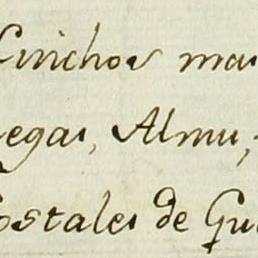 Cinchos mas
egas, Almu,
ostales de Gu